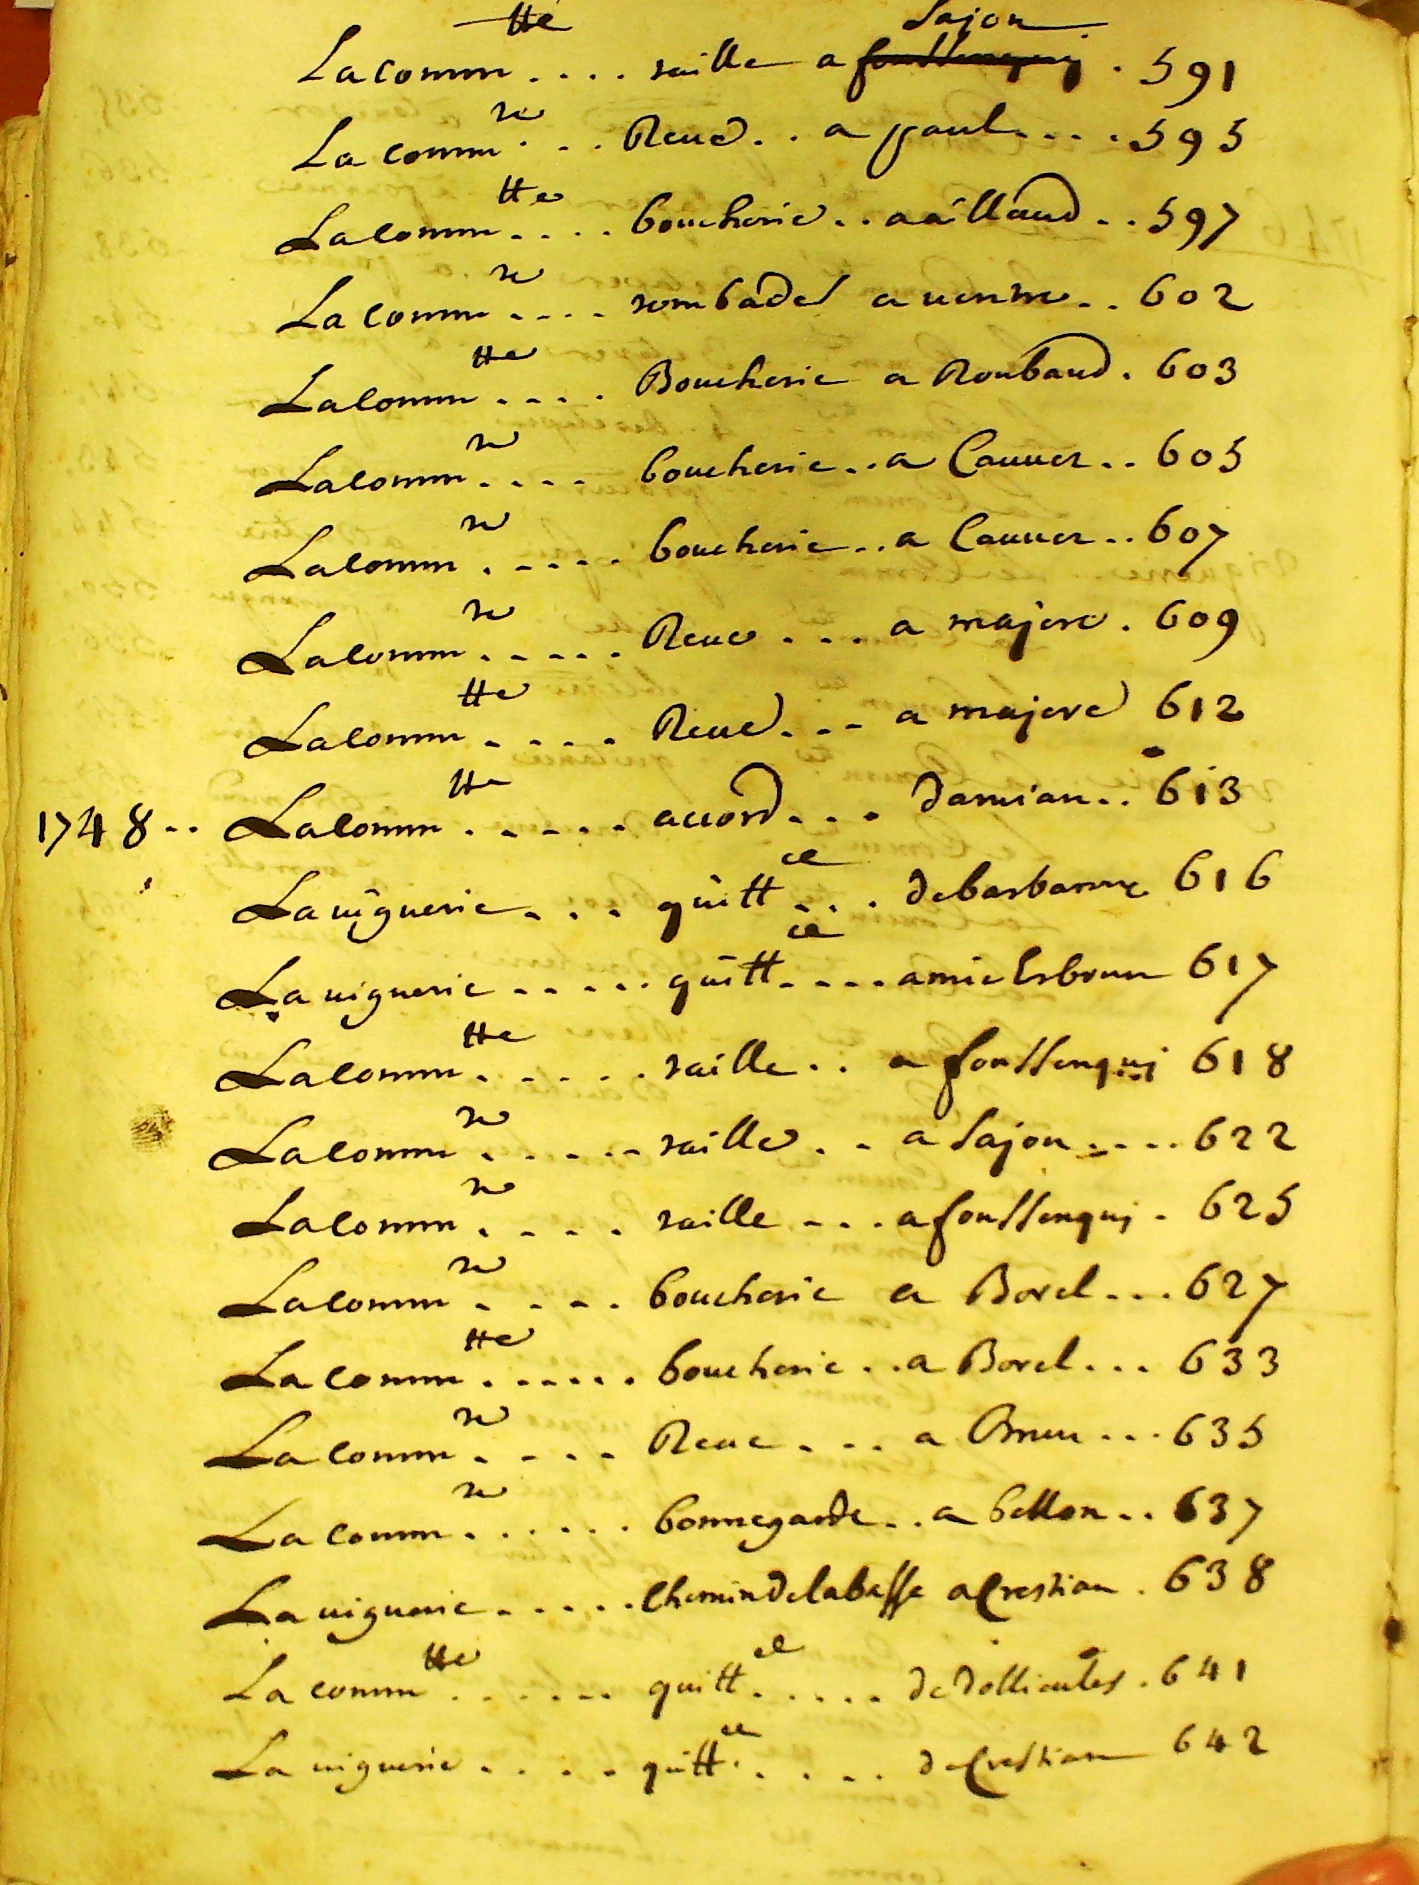 Sajon
La comm^tté .... taille a ~~fonssenquj~~ . 591
La comm^té ... Reue .. a paul .... 595
La comm^tté .... boucherie .. a aillaud .. 597
La comm^té .... tombades a .. 602
La comm^tté .... Boucherie a Roubaud . 603
La comm^té .... boucherie .. a Cauuet .. 605
La comm^té ..... boucherie .. a Cauuet .. 607
La comm^té ..... Reue .... a majere . 609
La comm^tté .... Reue ... a majere 612
1748 .. La comm^tté ..... accord ... damian .. 613
La uiguerie ... quitt^ce ... de barbarme 616
La uiguerie ..... quitt^ce .... amic Esbrun 617
La comm^tté ..... taille .. a fonssenquj 618
La comm^té ..... taille .. a Sajon .... 622
La comm^té .... taille ... a fonssenquj . 625
La comm^té .... boucherie a Borel ... 627
La comm^tté ..... boucherie .. a Borel ... 633
La comm^té .... Reue ... a Brun ... 635
La comm^té ...... bonnegarde .. a bellon .. 637
La uiguerie ..... Chemin de la basse a Crestian . 638
La comm^tté ...... quitt^ce ..... de dollioules . 641
La uiguerie .... quitt^ce .... de Crestian 642